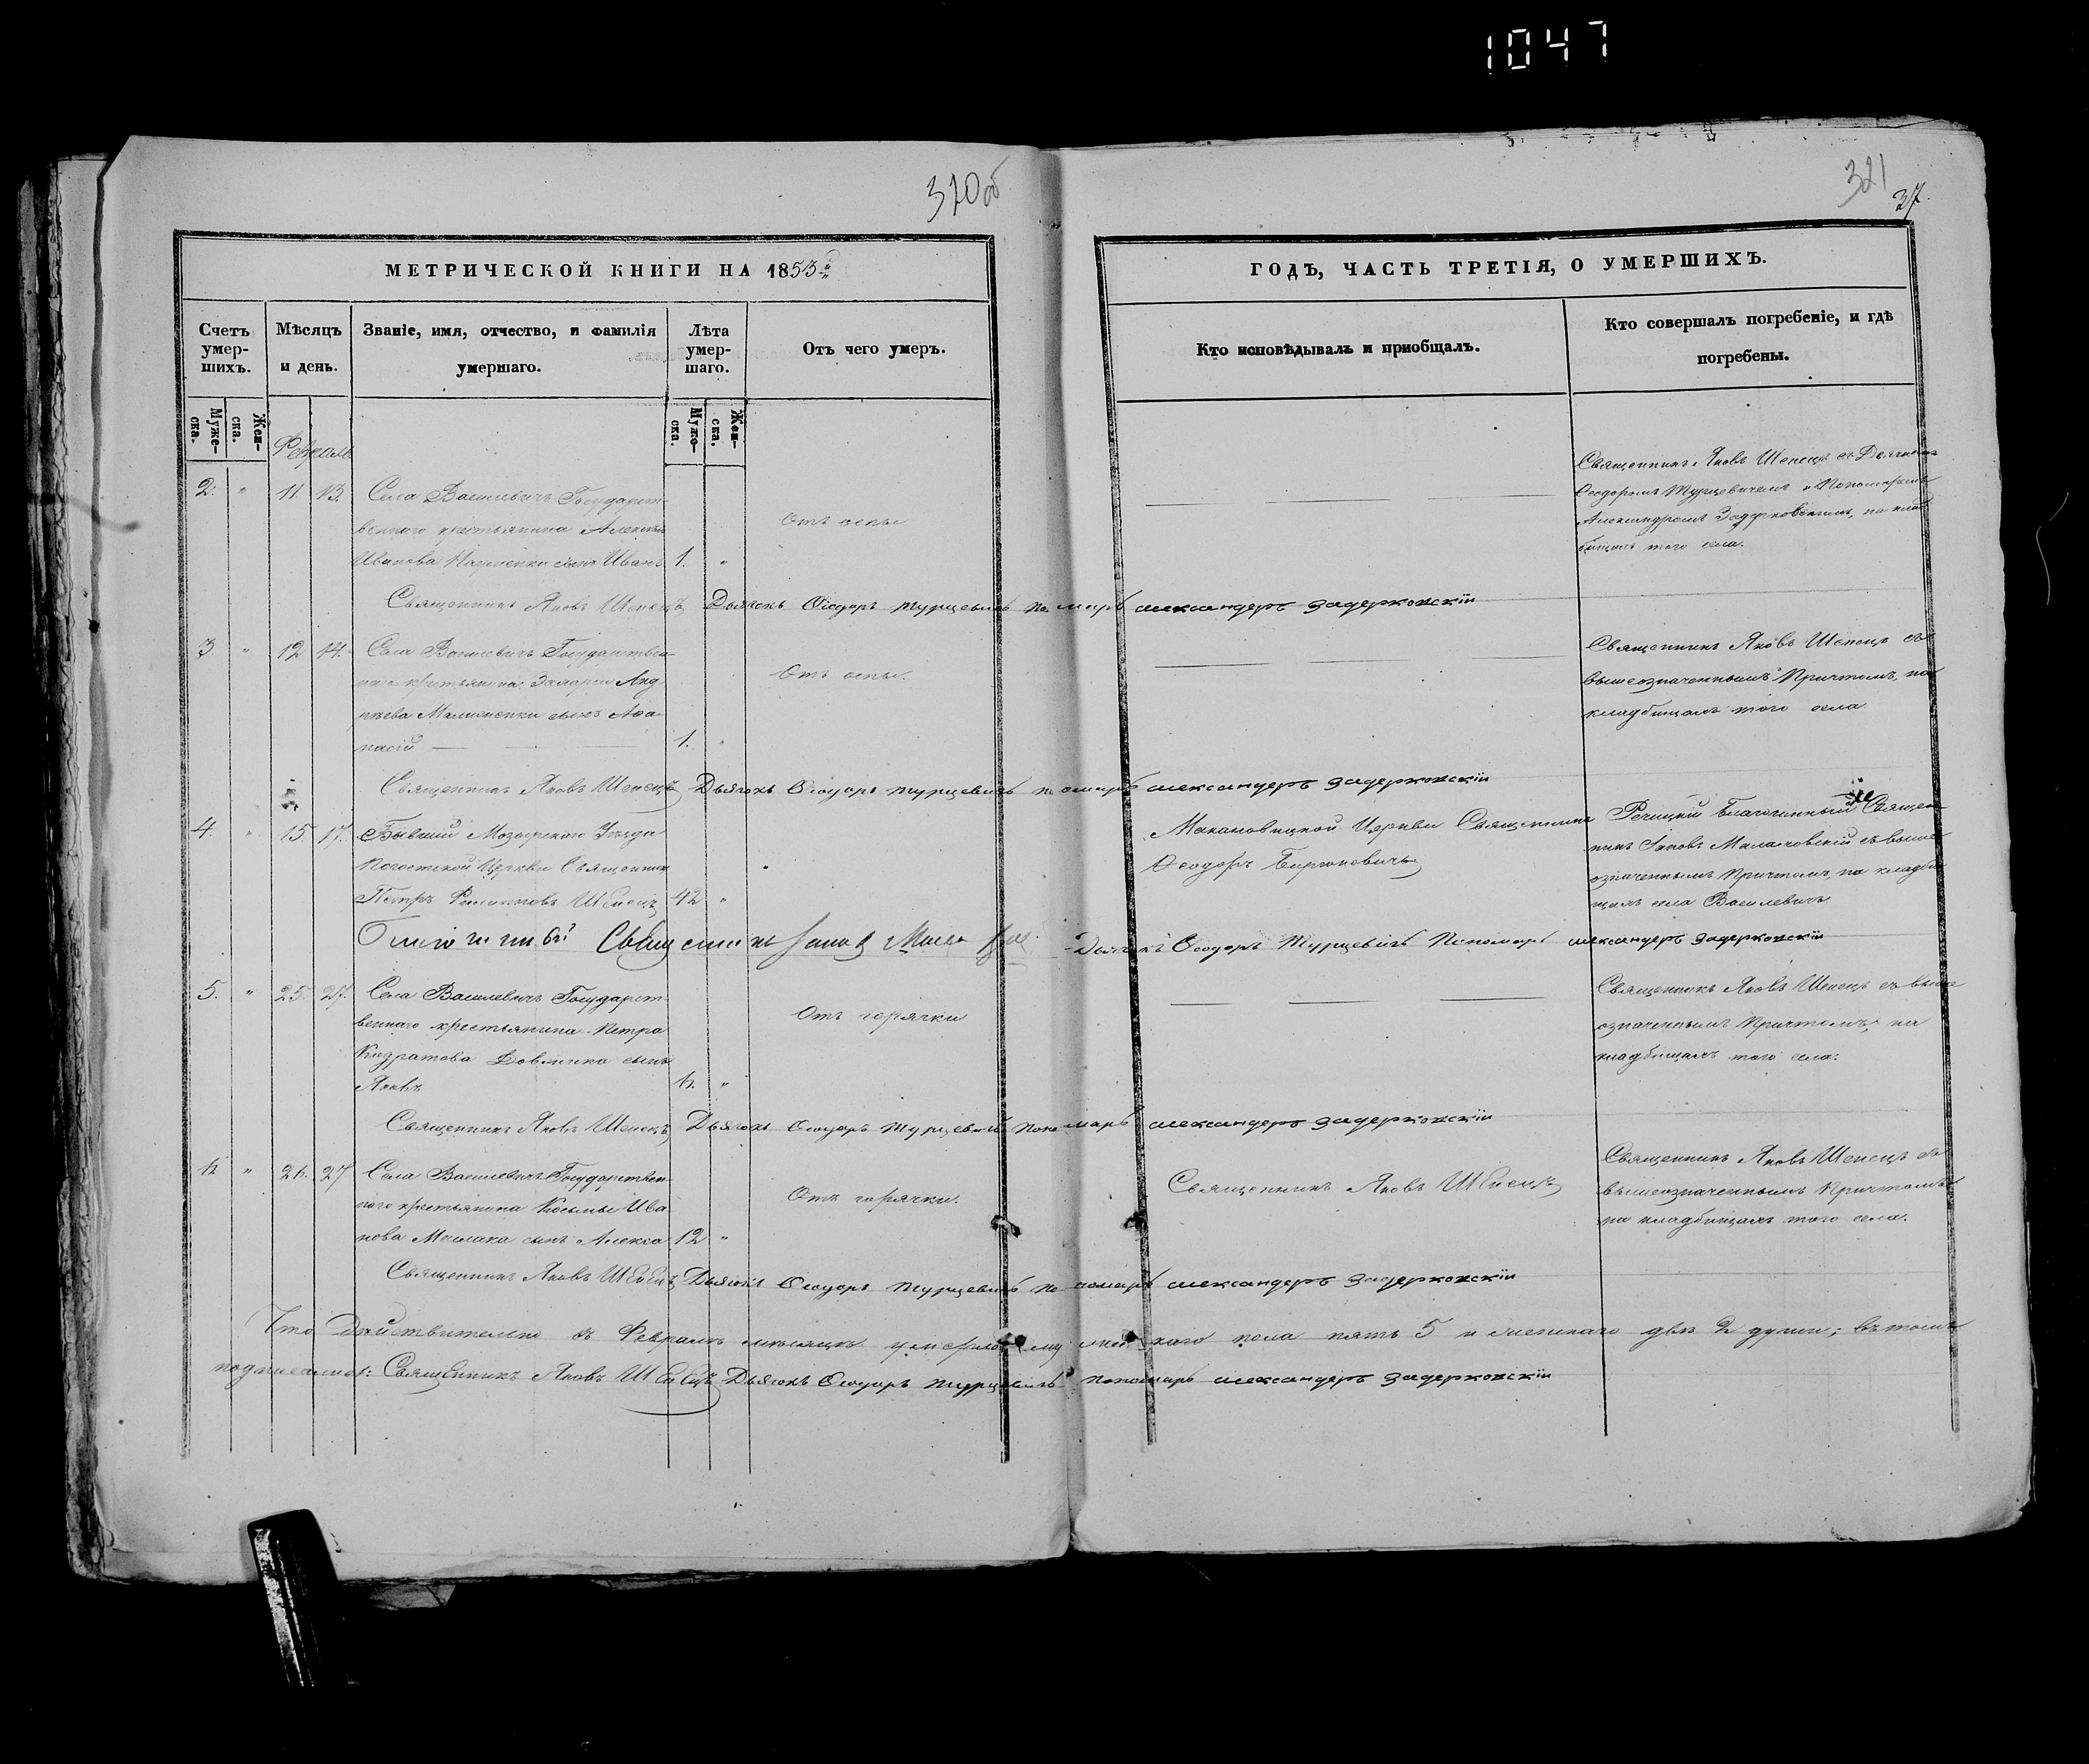 1047
320об
321
37.
МЕТРИЧЕСКОЙ КНИГИ НА 1853й
ГОДЪ, ЧАСТЬ ТРЕТІЯ, О УМЕРШИХЪ.
Счетъ умер-шихъ.
Мѣсяцъ и день.
Званіе, имя, отчество, и фамилія умершаго.
Лѣта умер-шаго.
Отъ чего умеръ.
Кто исповѣдывалъ и пріобщалъ.
Кто совершалъ погребеніе, и гдѣ погребены.
Муже-ска.
Жен-ска.
Муже-ска.
Жен-ска.
Февраль
2. " 11. 13.
Села Василевичъ Государст-
веннаго крестьянина Алексѣя
Иванова сынъ Иванъ 1. "
Отъ оспы
Священникъ Яковъ Шепецъ съ Дьячкомъ
Ѳеодоромъ Турцевичемъ и Пономаремъ
Александромъ Задерковскимъ, на клад-
бищахъ того села.
Священникъ Яковъ Шепецъ Дьячокъ Ѳеодоръ Турцевичъ пономарь александеръ Задерковскіи
3. " 12 14.
Села Василевичъ Государствен-
наго крестьянина Захаріи Анд-
реева сынъ Аѳа-
насій 1. "
Отъ оспы.
Священникъ Яковъ Шепецъ съ
вышеозначеннымъ Причтомъ, на
кладбищахъ того села.
Священникъ Яковъ Шепецъ Дьячокъ Ѳеодоръ Турцевичъ пономарь александеръ Задерковскіи
4. " 15. 17.
Бывшій Мозырскаго Уѣзда
Погостской Церкви Священникъ
Петръ Филипповъ Шепецъ 42 "
Макановицкой Церкви Священникъ
Ѳеодоръ Бирюковичъ
Речицкій Благочинный Священ-
никъ Іаковъ Малаховскій съ выше-
означеннымъ Причтомъ, на кладби-
щахъ села Василевичъ.
Священникъ Дьячокъ Ѳеодоръ Турцевичъ Пономарь александеръ Задерковскіи
5. " 25. 27.
Села Василевичъ Государст-
веннаго крестьянина Петра
Кодратова сынъ
Яковъ 6. "
Отъ горячки
Священникъ Яковъ Шепецъ съ выше-
означеннымъ Причтомъ, на
кладбищахъ того села.
Священникъ Яковъ Шепецъ Дьячокъ Ѳеодоръ Турцевичъ пономарь александеръ Задерковскіи
6 " 26. 27
Села Василевичъ Государствен-
наго крестьянина Космы Ива-
нова сынъ Алекса 12 "
Отъ горячки.
Священникъ Яковъ Шепецъ
Священникъ Яковъ Шепецъ съ
вышеозначеннымъ Причтомъ
на кладбищахъ того села.
Священникъ Яковъ Шепецъ Дьячокъ Ѳеодоръ Турцевичъ пономарь александеръ Задерковскіи
Что дѣйствительно въ Февралѣ мѣсяцѣ умерло мужескаго пола пять 5 и женскаго двѣ 2 души; въ томъ
подписались: Священникъ Яковъ Шепецъ Дьячокъ Ѳеодоръ Турцевичъ пономарь александеръ Задерковскіи